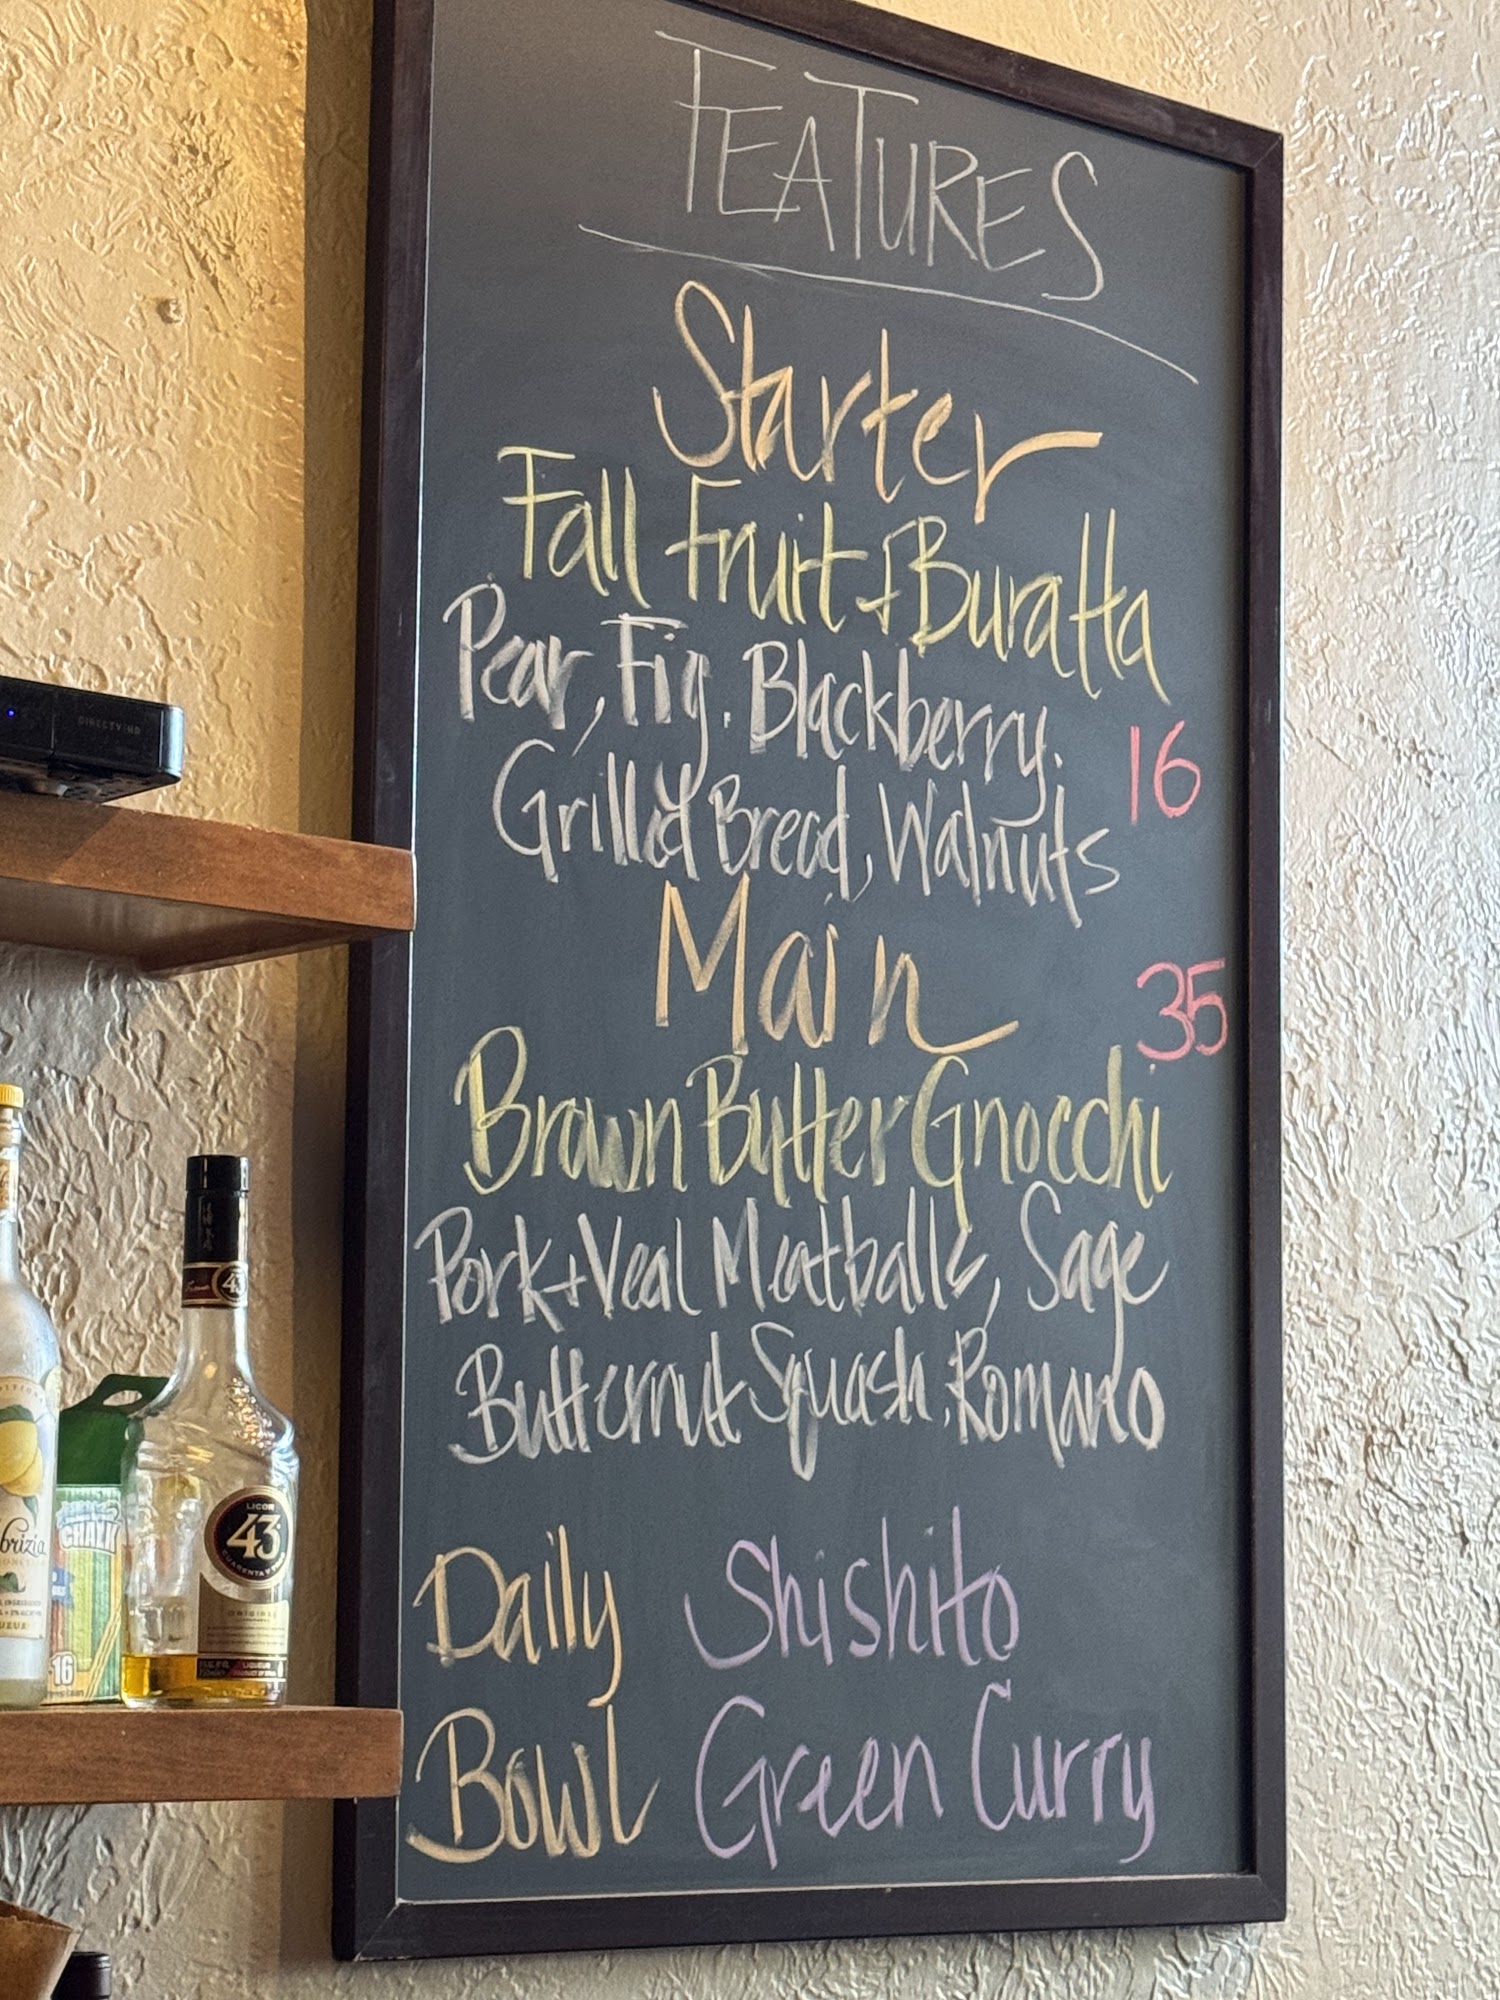 FEATURES
Starter
Fall Fruit + Buratta
Pear, Fig. Blackberry.
Grilled Bread, Walnuts
16
Main
35
Brown Butter Gnocchi
Pork + Veal Meatballs, Sage
Butternut Squash, Romano
Daily Shishito
Bowl Green Curry
DIRECTV HD
43
LICOR
43
CUARENTA Y TRES
ORIGINAL
LIQUEUR
brizia
CHALK
16